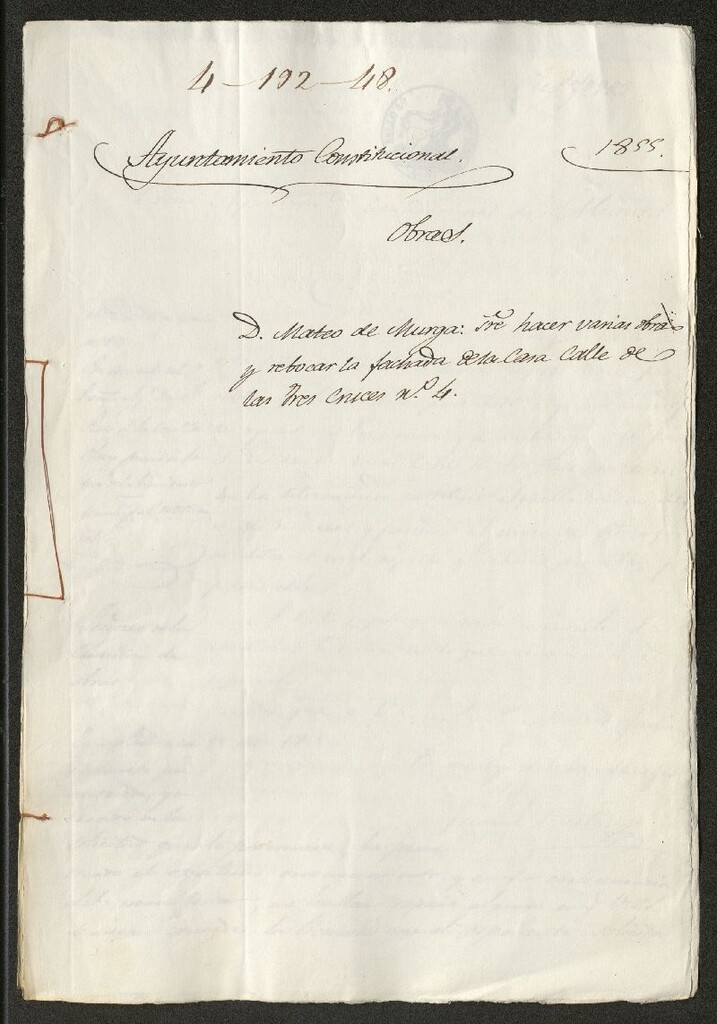 4-192-48.
Ayuntamiento Constitucional. 1855.
Obras.
D. Mateo de Murga: sre hacer varias obras
y rebocar la fachada de la Casa Calle de
las Tres Cruces nº 4.